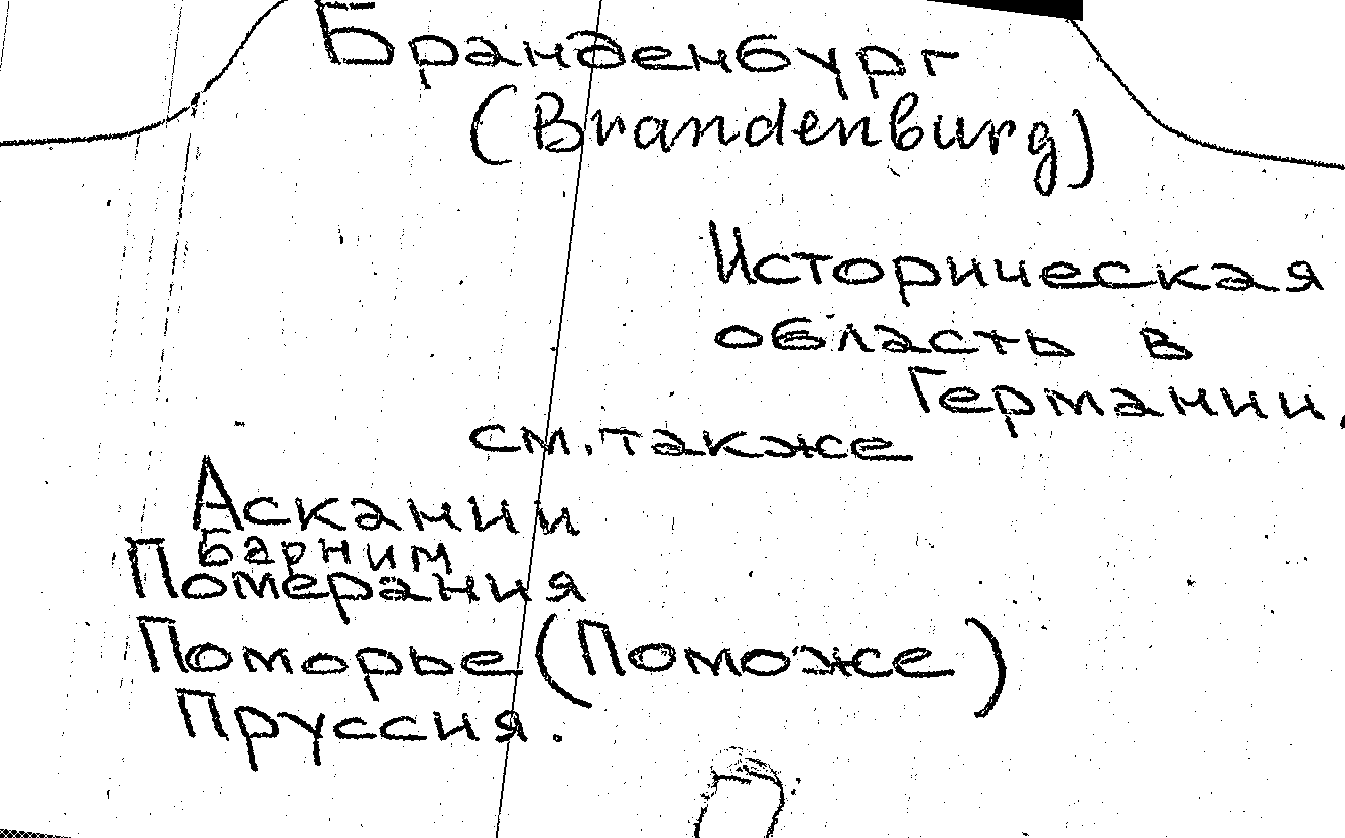 Бранденбург
(Brandenburg)
Историческая
область в
Германии.
см. также
Аскании
Барним
Померания
Поморье (Поможе)
Пруссия.